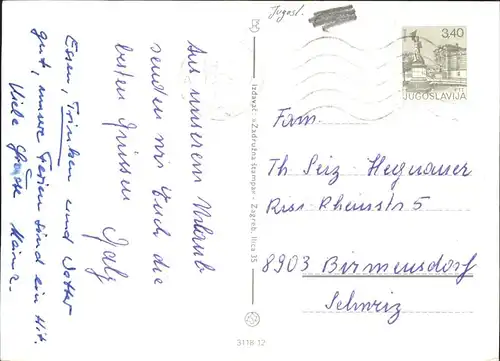 Aus unserem Urlaub
senden wir Euch die
besten Grüssen
Essen, Trinken und Wetter
gut, unsere Ferien sind ein Hit.
Viele Grüsse
Izdavač: »Zadružna štampa« - Zagreb, Ilica 35
Jugosl.
3,40
JUGOSLAVIJA
Fam.
Th Seiz-Hegnauer
Rheinstr 5
8903 Birmensdorf
Schweiz
3118-12